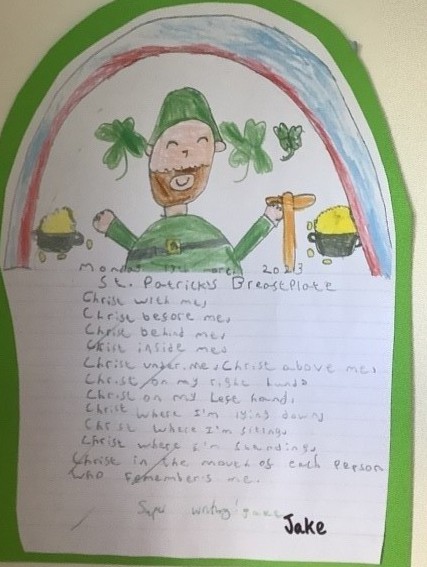 Monday 13th March 2023
St. Patrick's Breastplate
Christ with me,
Christ before me,
Christ behind me,
Christ inside me,
Christ under me, Christ above me,
Christ on my right hand,
Christ on my left hand,
Christ where I'm lying down,
Christ where I'm sitting,
Christ where I'm standing,
Christ in the mouth of each person
who remembers me.
Super writing
Jake